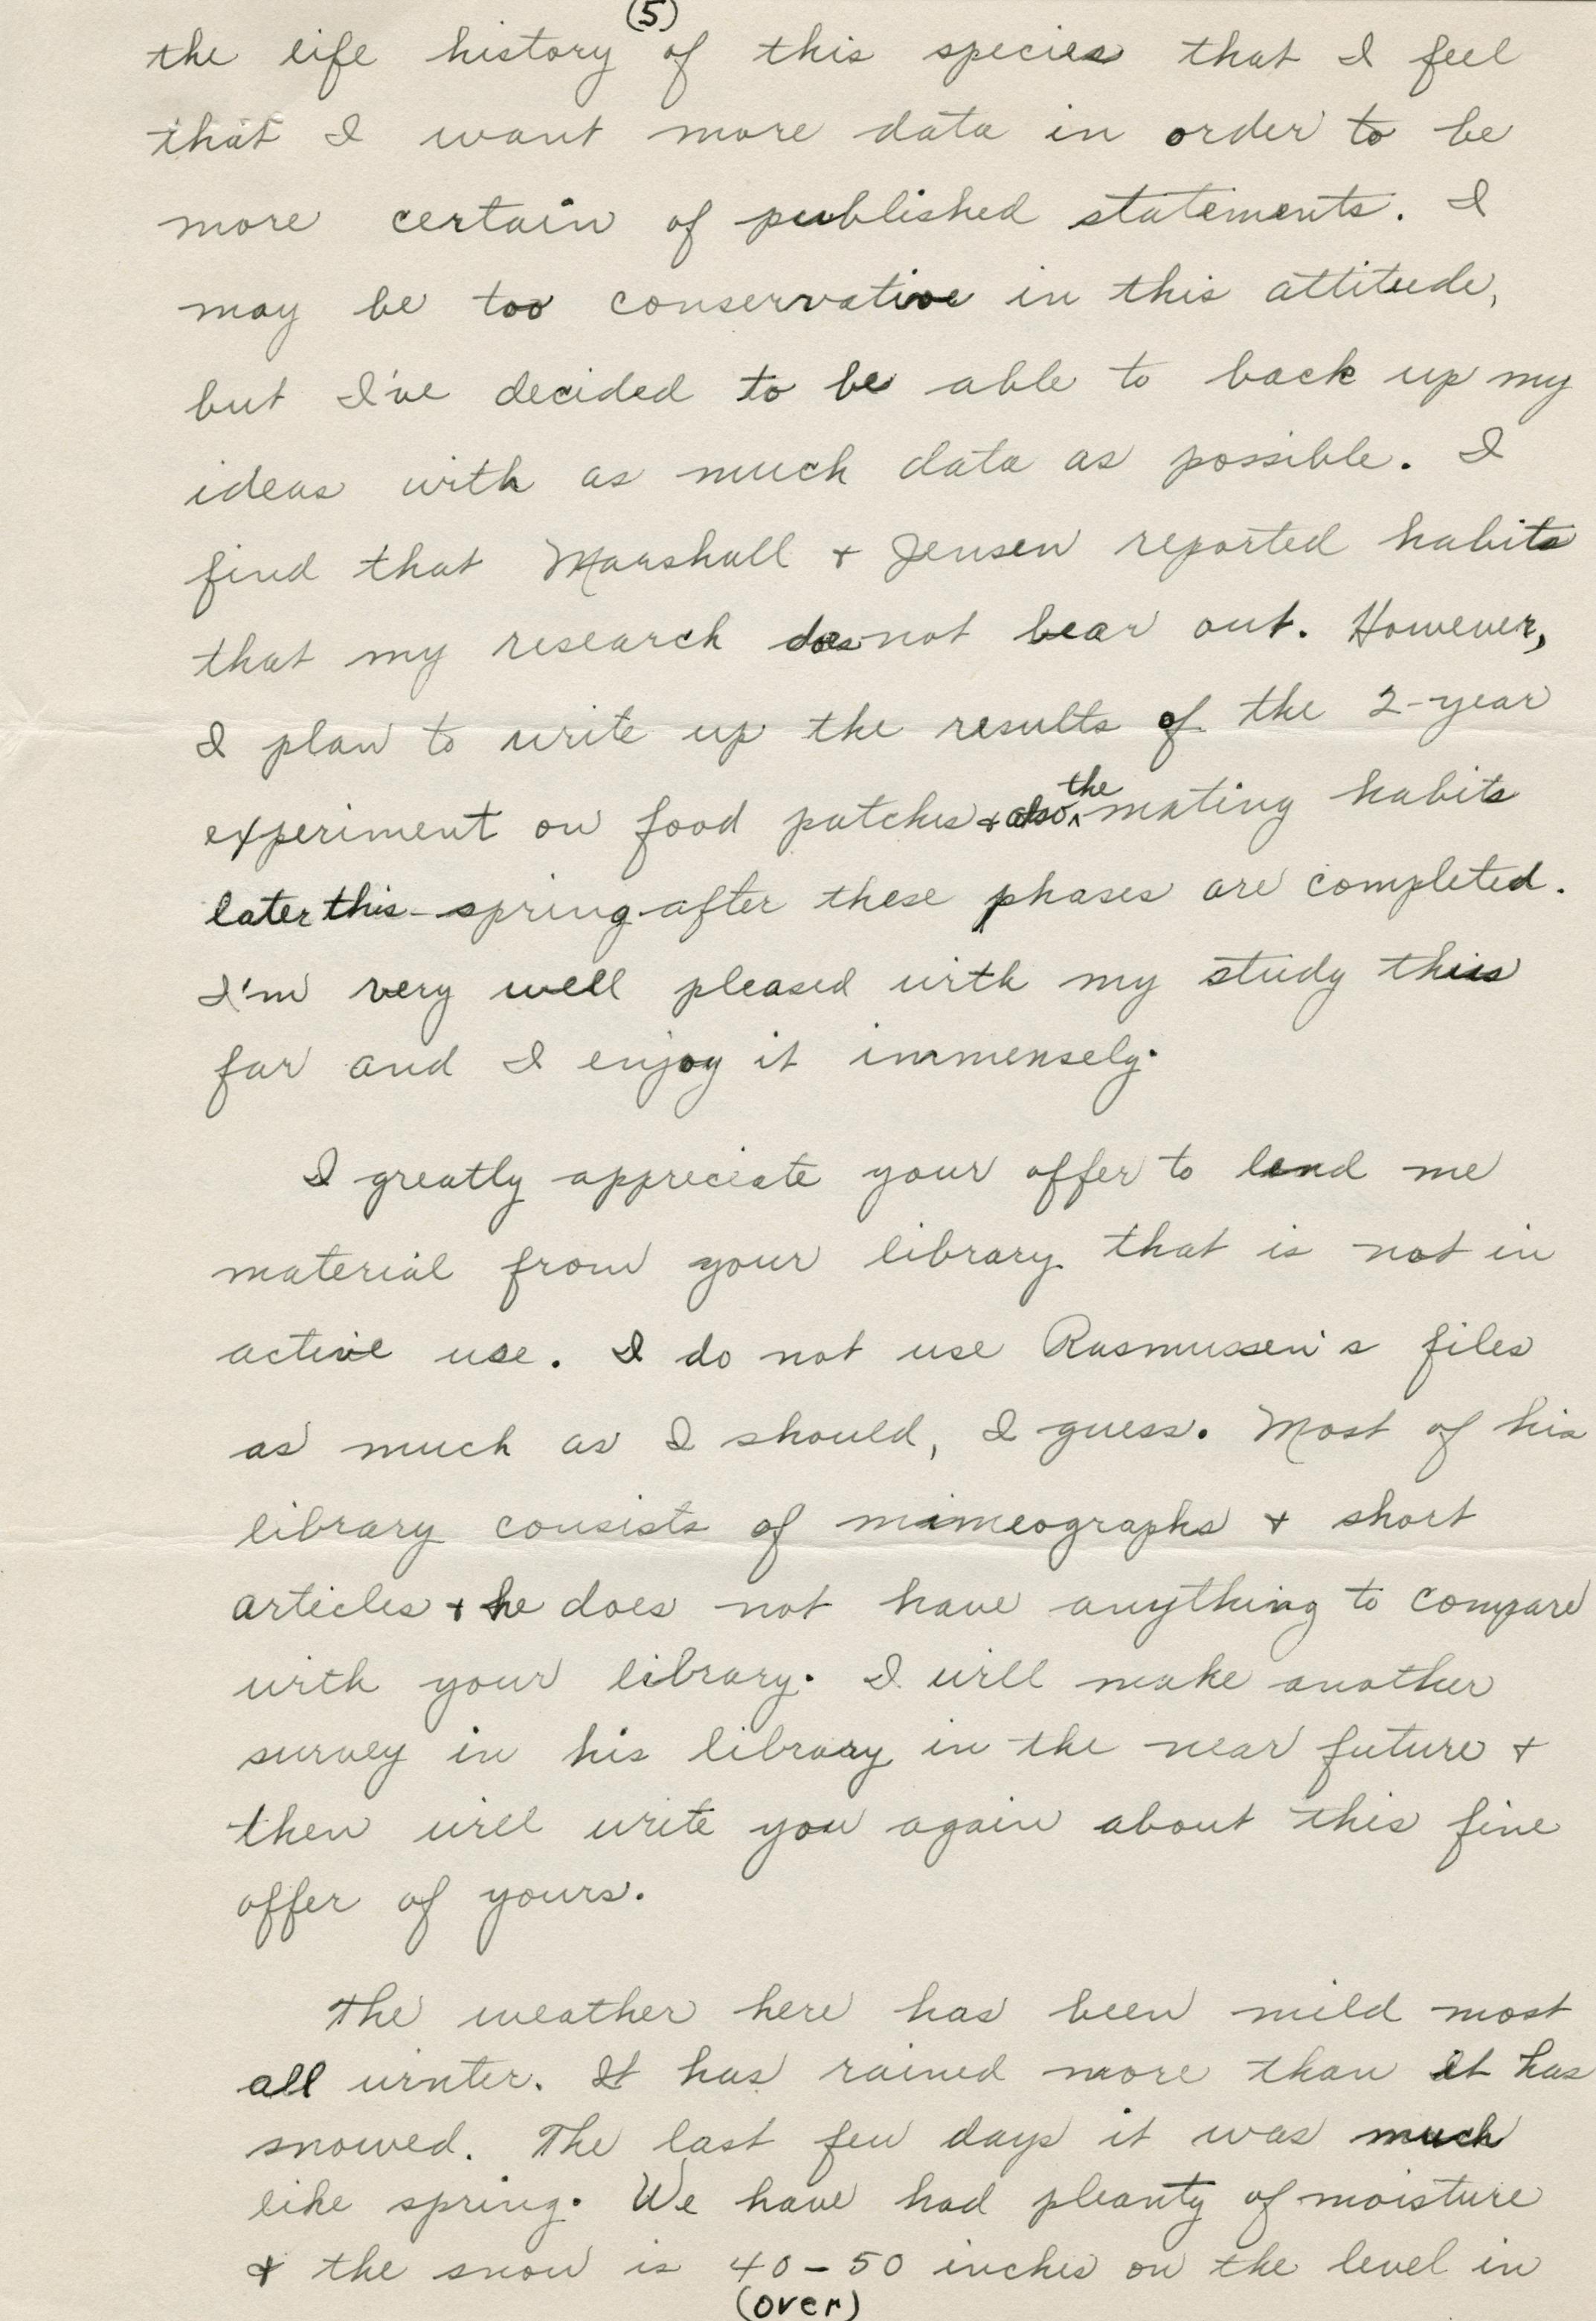 (5)
the life history of this species that I feel
that I want more data in order to be
more certain of published statements. I
may be too conservative in this attitude,
but I've decided to be able to back up my
ideas with as much data as possible. I
find that Marshall + Jensen reported habits
that my research does not bear out. However,
I plan to write up the results of the 2-year
experiment on food patches + also the mating habits
later this spring after these phases are completed.
I'm very well pleased with my study this
far and I enjoy it immensely.
I greatly appreciate your offer to lend me
material from your library that is not in
active use. I do not use Rasmussen's files
as much as I should, I guess. Most of his
library consists of mimeographs + short
articles + he does not have anything to compare
with your library. I will make another
survey in his library in the near future +
then will write you again about this fine
offer of yours.
The weather here has been mild most
all winter. It has rained more than it has
snowed. The last few days it was much
like spring. We have had pleanty of moisture
+ the snow is 40-50 inches on the level in
(over)